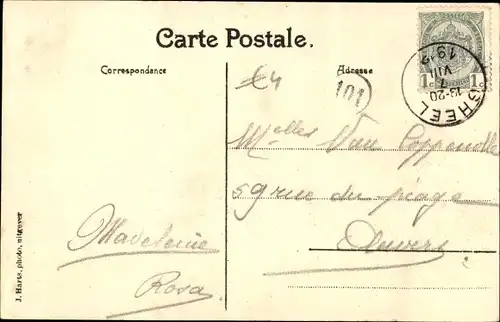 Carte Postale.
Correspondance
Adresse
€4
101
1c 1c
GHEEL
13-20
7
VIII
Melles Van Coppenolle
59 rue du péage
Anvers
Madeleine
Rosa
J. Harts, photo, uitgever